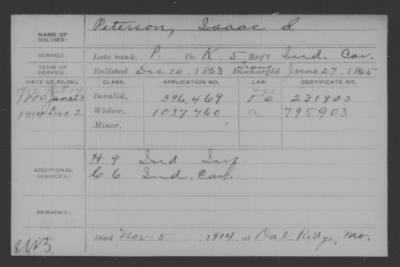 NAME OF SOLDIER: Peterson, Isaac S.
SERVICE: Late rank, P. Co. K, 5 Reg't Ind. Cav.
TERM OF SERVICE: Enlisted Dec. 10, 1863 Discharged June 27, 1865
DATE OF FILING. CLASS. APPLICATION NO. LAW. CERTIFICATE NO.
1880 June 23 Invalid, 396,469 231903
1914 Dec 2 Widow, 1037460 a 795903
Minor,
ADDITIONAL SERVICES:
H 9 Ind Inf
C 6 Ind. Cav.
REMARKS:
Died Nov 5, 1914, at Oak Ridge, Mo.